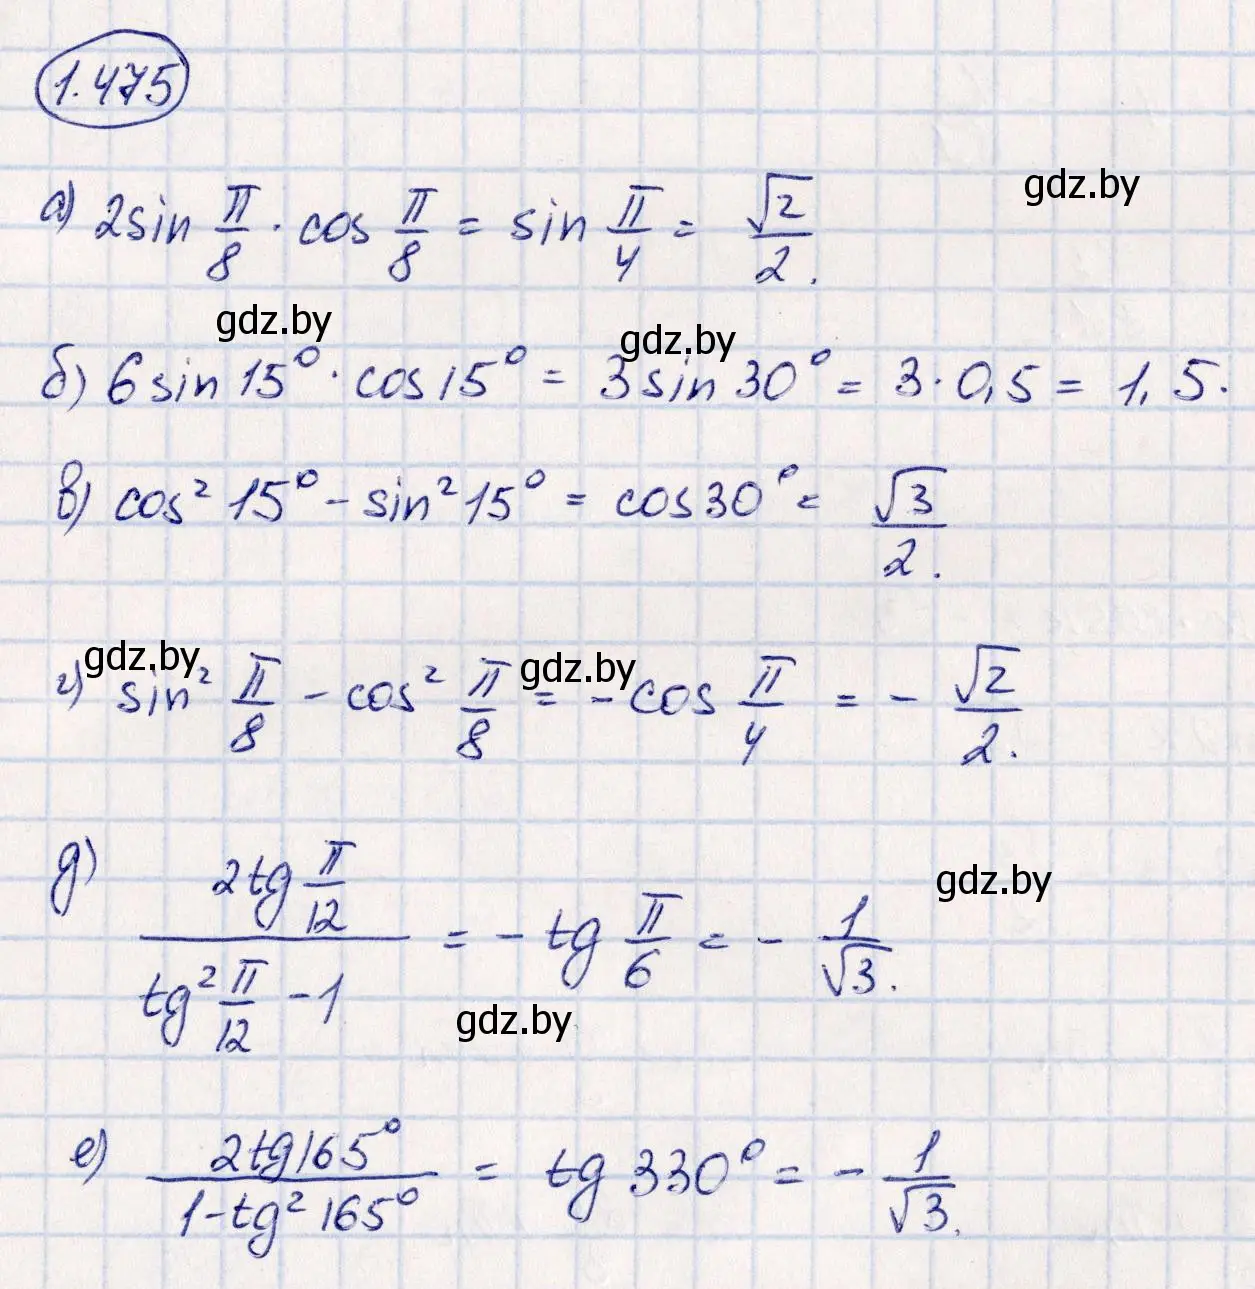 1.475
gdz.by
а) 2sin π/8 · cos π/8 = sin π/4 = √2/2.
gdz.by gdz.by
б) 6 sin 15° · cos 15° = 3 sin 30° = 3 · 0,5 = 1,5.
в) cos² 15° - sin² 15° = cos 30° = √3/2.
gdz.by gdz.by
г) sin² π/8 - cos² π/8 = - cos π/4 = - √2/2.
gdz.by
д) 2tg π/12 / (tg² π/12 - 1) = - tg π/6 = - 1/√3.
gdz.by
е) 2tg 165° / (1 - tg² 165°) = tg 330° = - 1/√3.